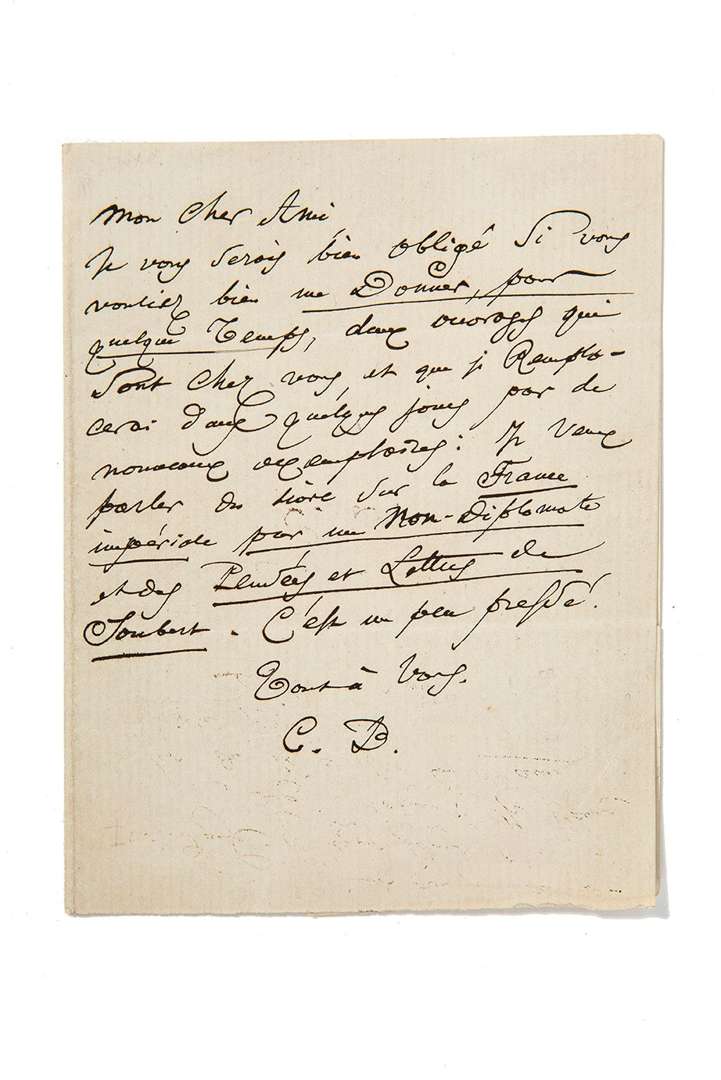 Mon cher Ami,
Je vous serais bien obligé si vous
vouliez bien me Donner, pour
quelque Temps, deux ouvrages qui
sont chez vous, et que je Rempla-
cerai dans quelques jours par de
nouveaux exemplaires : Je veux
parler du livre sur la France
impériale par un Non-diplomate
et des Pensées et Lettres de
Joubert. C'est un peu pressé.
Tout à vous.
C. B.